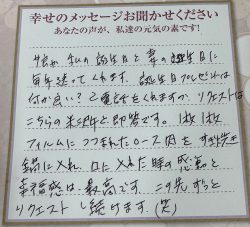 幸せのメッセージお聞かせください
あなたの声が、私達の元気の素です!
娘が私の誕生日と妻の誕生日に
毎年送ってくれます。誕生日プレゼントは
何が良い?と電話をくれますが、リクエストは
こちらの米沢牛と即答です。1枚1枚
フィルムにつつまれたロース肉をすき焼き
鍋に入れ、口に入れた時の感動と
幸福感は最高です。この先ずっと
リクエストし続けます。(笑)